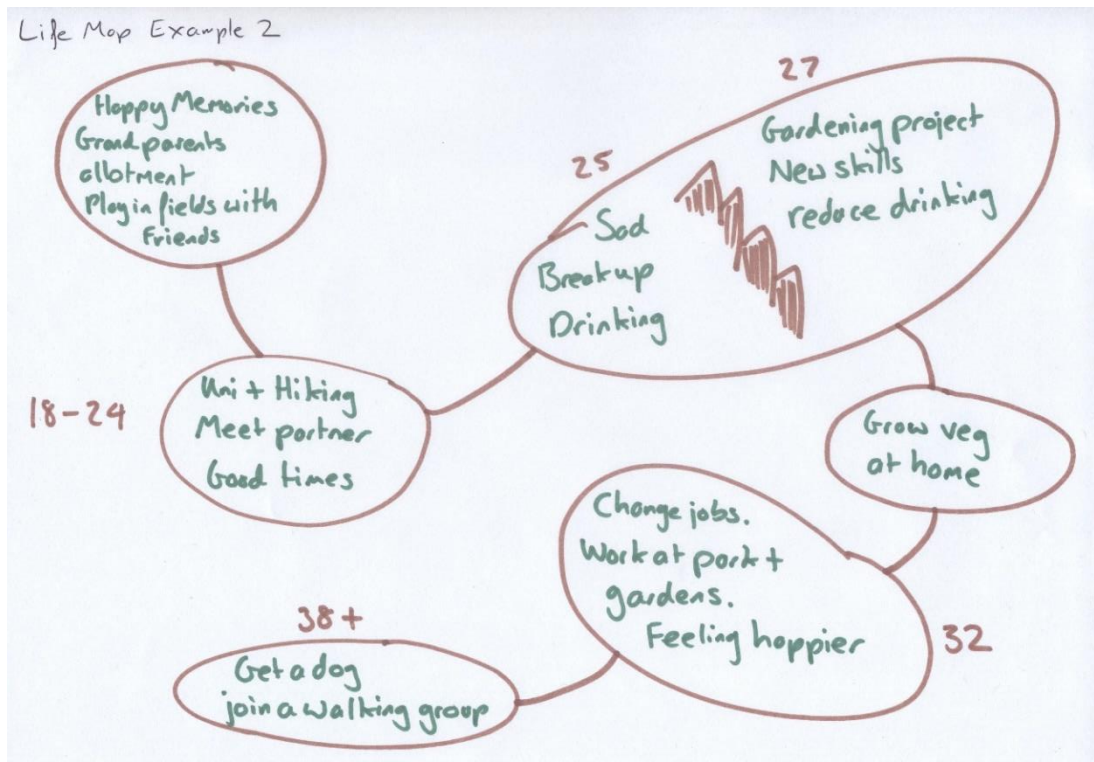 Life Map Example 2
Happy Memories
Grandparents
allotment
Play in fields with
Friends
18-24
Uni + Hiking
Meet partner
Good times
25
Sad
Breakup
Drinking
27
Gardening project
New skills
reduce drinking
Grow veg
at home
Change jobs.
Work at park +
gardens.
Feeling happier
32
38+
Get a dog
join a walking group